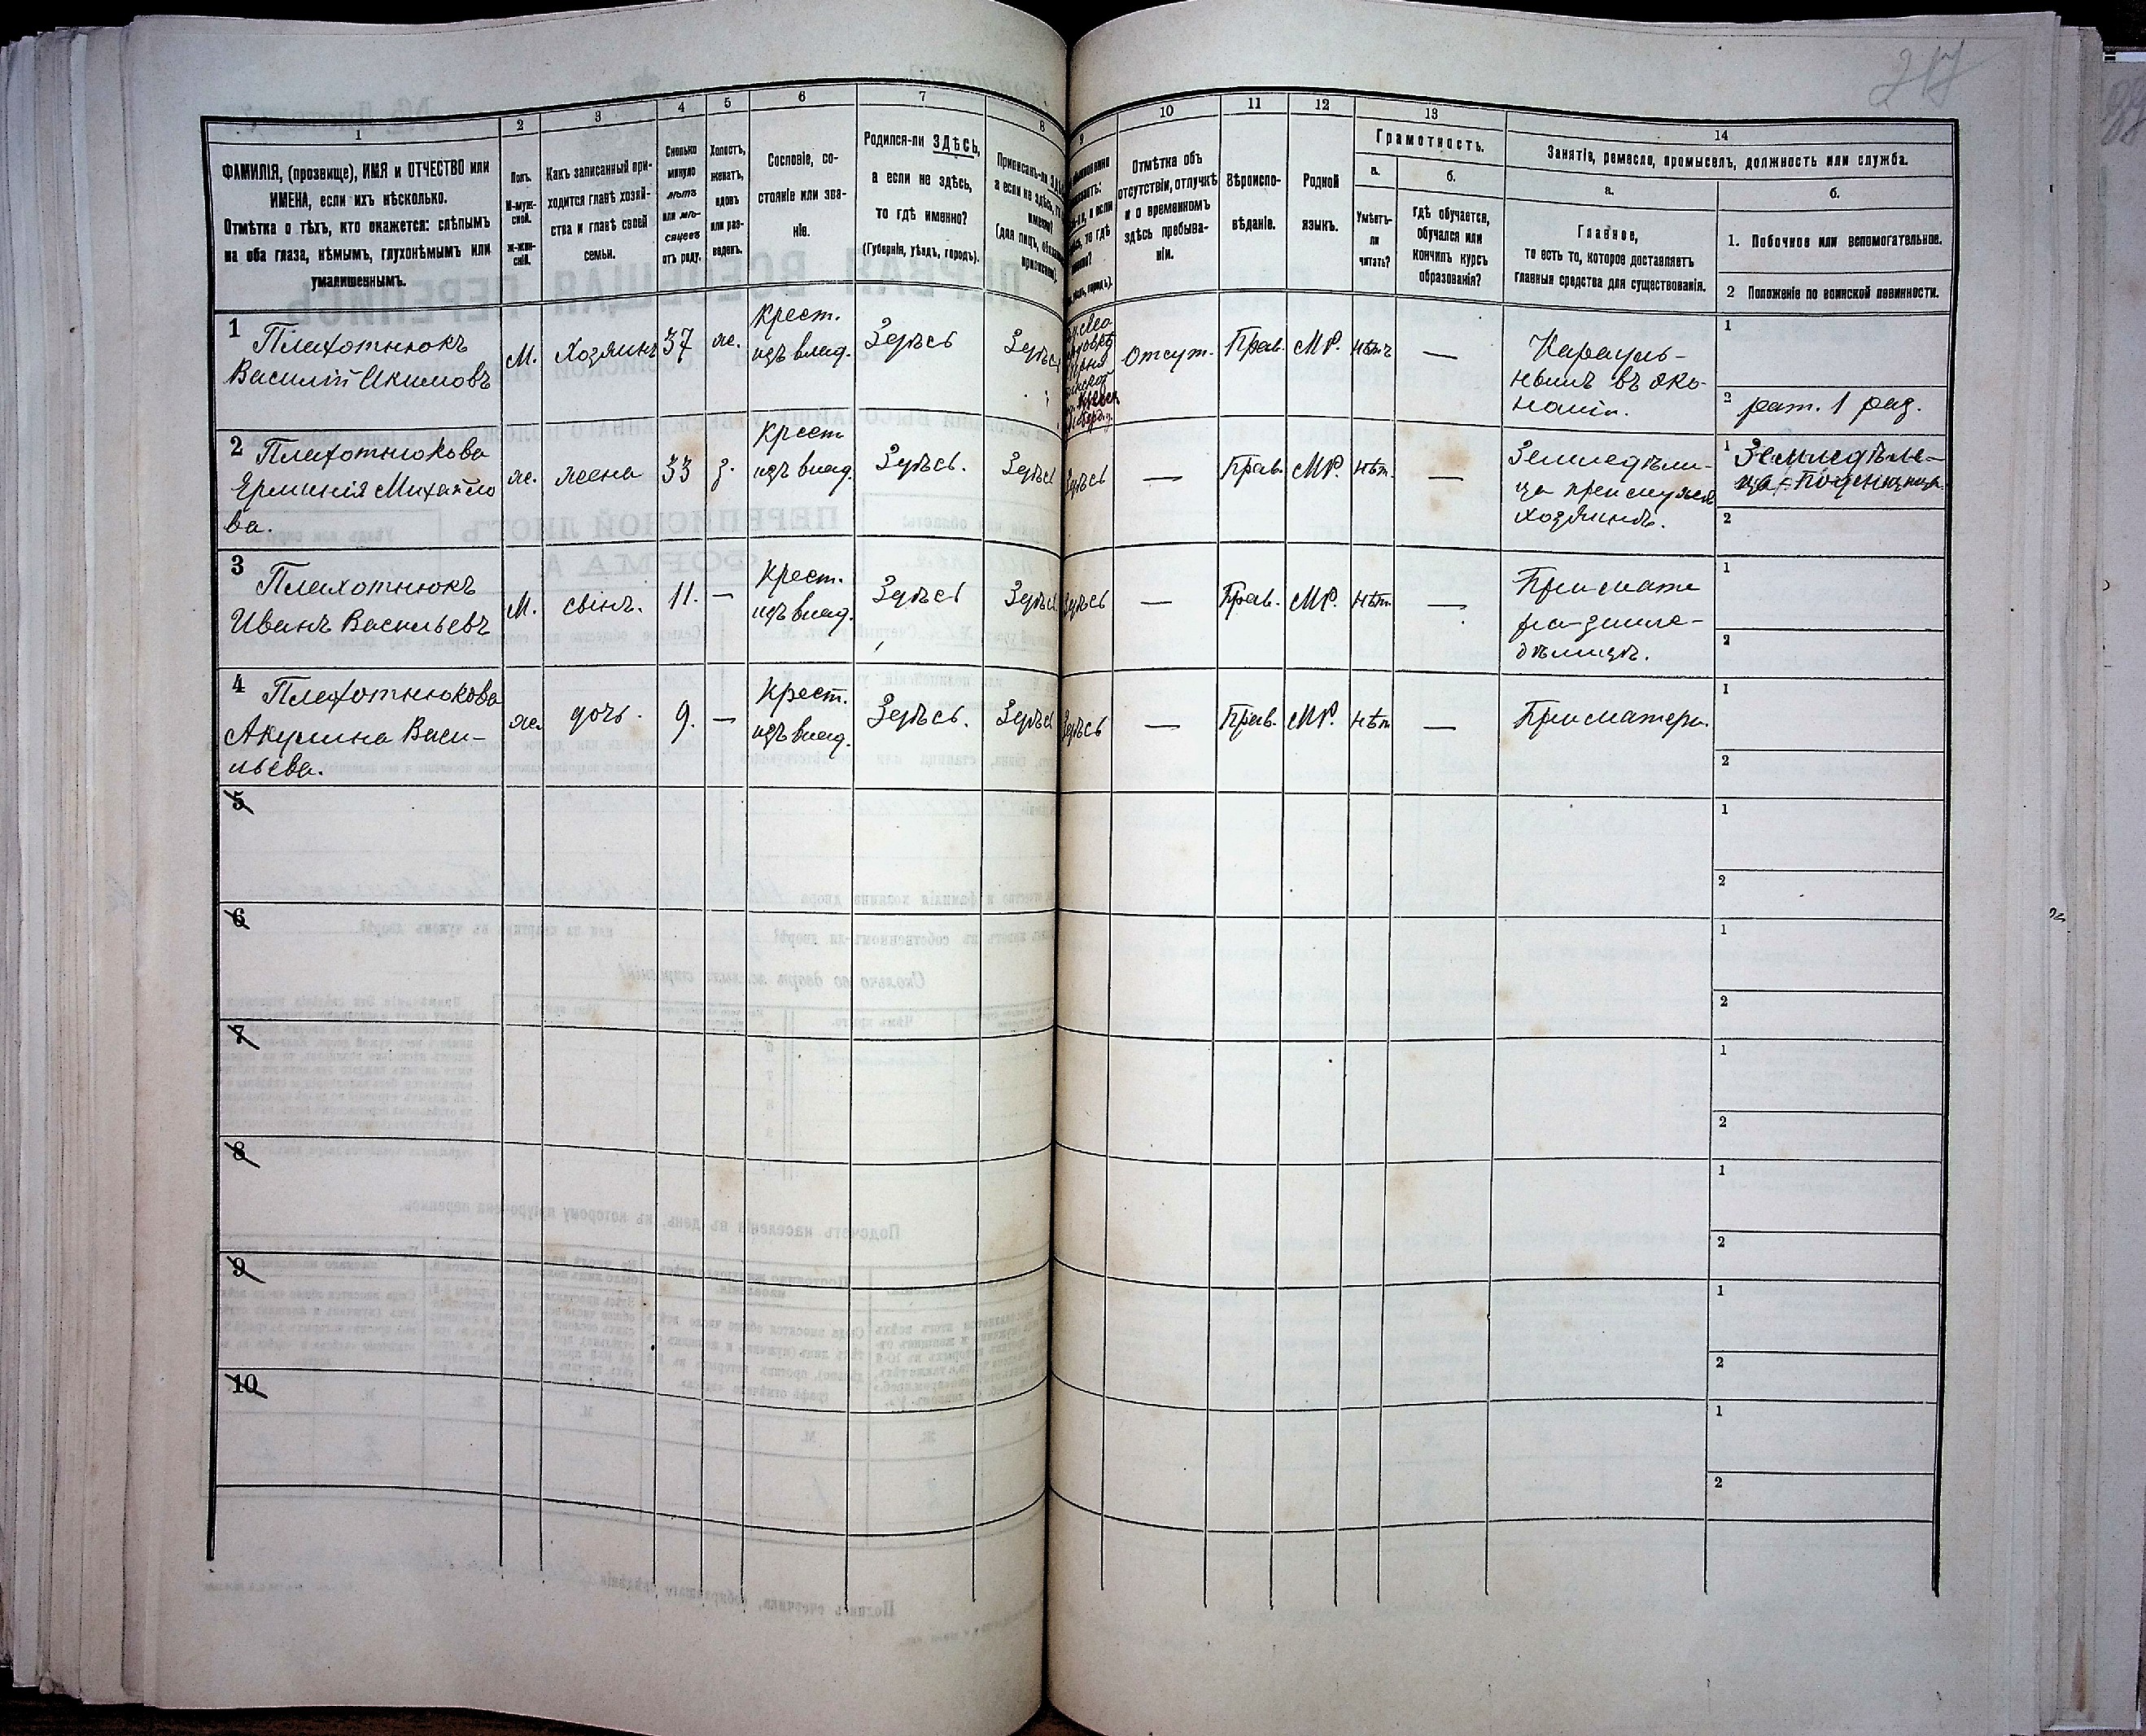 217
1
2
3
4
5
6
7
8
ФАМИЛІЯ, (прозвище), ИМЯ и ОТЧЕСТВО или
ИМЕНА, если ихъ нѣсколько.
Отмѣтка о тѣхъ, кто окажется: слѣпымъ
на оба глаза, нѣмымъ, глухонѣмымъ или
умалишеннымъ.
Полъ.
М-муж-
ской.
ж-жен-
скій.
Какъ записанный при-
ходится главѣ хозяй-
ства и главѣ своей
семьи.
Сколько
минуло
лѣтъ
или мѣ-
сяцевъ
отъ роду.
Холостъ,
женатъ,
вдовъ
или раз-
веденъ.
Сословіе, со-
стояніе или зва-
ніе.
Родился-ли ЗДѢСЬ,
а если не здѣсь,
то гдѣ именно?
(Губернія, уѣздъ, городъ).
9
10
11
12
13
14
Отмѣтка объ
отсутствіи, отлучкѣ
и о временномъ
здѣсь пребыва-
ніи.
Вѣроиспо-
вѣданіе.
Родной
языкъ.
Грамотность.
а.
Умѣетъ-
ли
читать?
б.
гдѣ обучается,
обучался или
кончилъ курсъ
образованія?
Занятіе, ремесло, промыселъ, должность или служба.
а.
Главное,
то есть то, которое доставляетъ
главныя средства для существованія.
б.
1. Побочное или вспомогательное.
2 Положеніе по воинской повинности.
1 Плахотнюкъ
Василій Акимовъ
М.
Хозяинъ
37
ж.
Крест.
изъ влад.
Здѣсь
Здѣсь
Отсут.
Прав.
МР.
нѣтъ
—
Карауль-
нымъ въ эко-
номіи.
1
2 рат. 1 раз.
2 Плахотнюкова
Ерминія Михайло
ва.
ж.
жена
33
з.
Крест
изъ влад.
Здѣсь.
Здѣсь
Здѣсь
—
Прав.
МР.
нѣт.
—
Земледѣли-
ца при мужѣ
хозяинѣ.
1 Земледѣле-
2
3 Плахотнюкъ
Иванъ Васильевъ
М.
сынъ.
11.
—
Крест.
изъ влад.
Здѣсь
Здѣсь
Здѣсь
—
Прав.
МР.
нѣт.
—
При мате
ри-земле-
дѣлицѣ.
1
2
4 Плахотнюкова
Акулина Васи-
льева.
ж.
дочь.
9.
—
Крест.
изъ влад.
Здѣсь.
Здѣсь
Здѣсь
—
Прав.
МР.
нѣт
—
При матери.
1
2
5
1
2
6
1
2
7
1
2
8
1
2
9
1
2
10
1
2